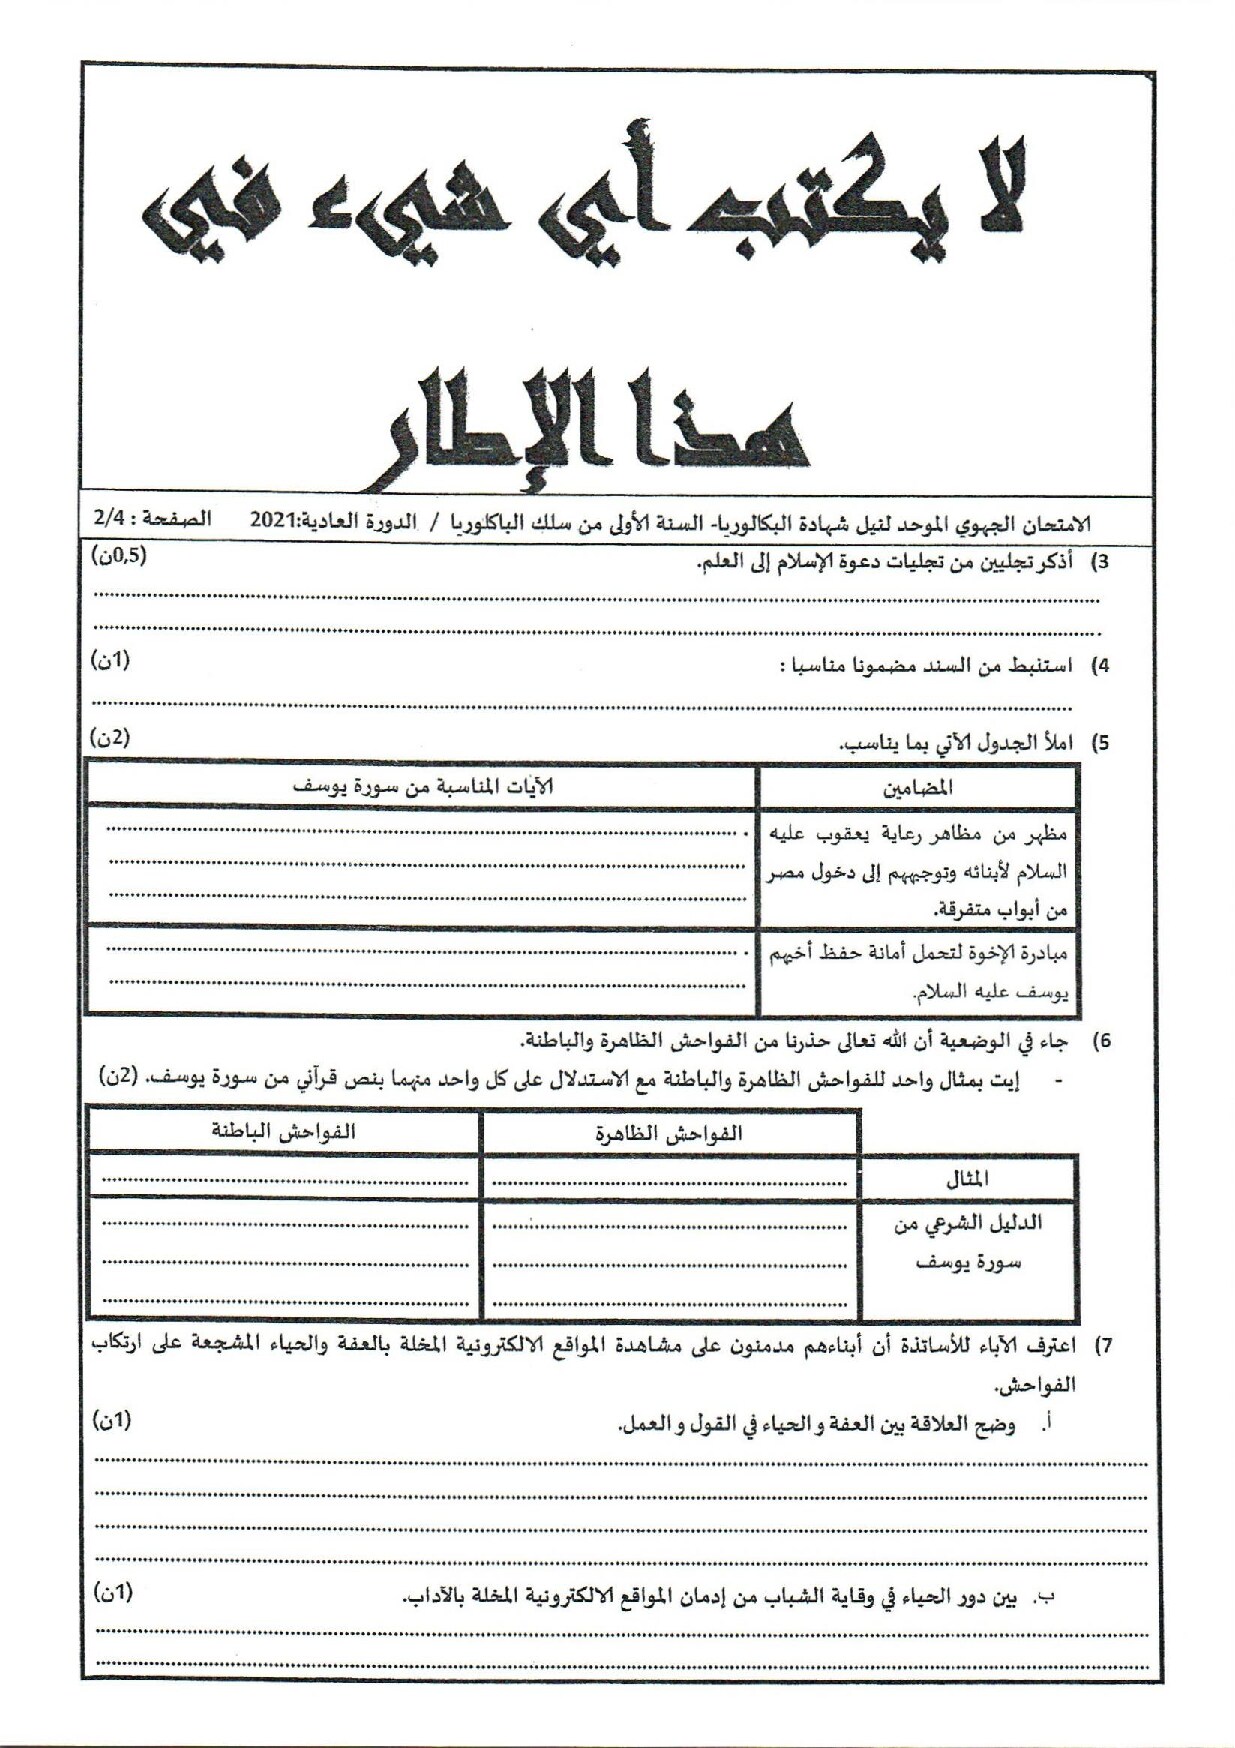 لا يكتب أي شيء في
هذا الإطار
الامتحان الجهوي الموحد لنيل شهادة البكالوريا- السنة الأولى من سلك الباكلوريا / الدورة العادية:2021 الصفحة : 2/4
3) أذكر تجليين من تجليات دعوة الإسلام إلى العلم. (0,5ن)
4) استنبط من السند مضمونا مناسبا : (1ن)
5) املأ الجدول الآتي بما يناسب. (2ن)
المضامين الآيات المناسبة من سورة يوسف
مظهر من مظاهر رعاية يعقوب عليه
السلام لأبنائه وتوجيههم إلى دخول مصر
من أبواب متفرقة.
مبادرة الإخوة لتحمل أمانة حفظ أخيهم
يوسف عليه السلام.
6) جاء في الوضعية أن الله تعالى حذرنا من الفواحش الظاهرة والباطنة.
- إيت بمثال واحد للفواحش الظاهرة والباطنة مع الاستدلال على كل واحد منهما بنص قرآني من سورة يوسف. (2ن)
الفواحش الظاهرة الفواحش الباطنة
المثال
الدليل الشرعي من
سورة يوسف
7) اعترف الآباء للأساتذة أن أبناءهم مدمنون على مشاهدة المواقع الالكترونية المخلة بالعفة والحياء المشجعة على ارتكاب
الفواحش.
أ. وضح العلاقة بين العفة و الحياء في القول و العمل. (1ن)
ب. بين دور الحياء في وقاية الشباب من إدمان المواقع الالكترونية المخلة بالآداب. (1ن)